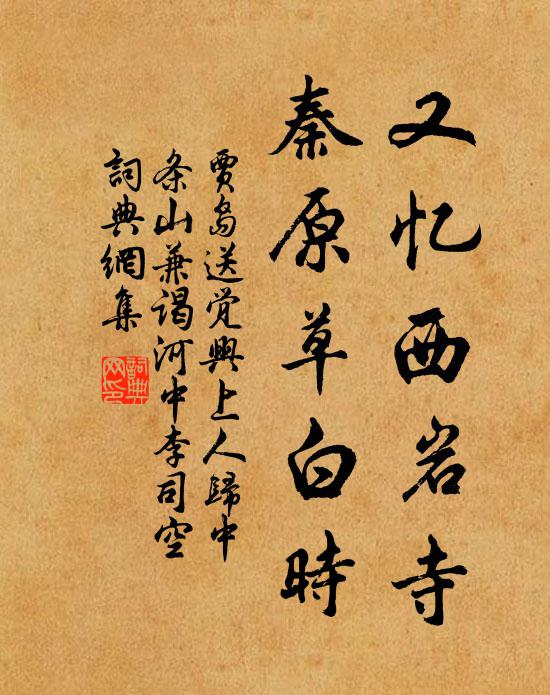 又忆西岩寺
秦原草白時
贾岛送觉興上人歸中
条山兼谒河中李司空
詞典網集
詞典网印